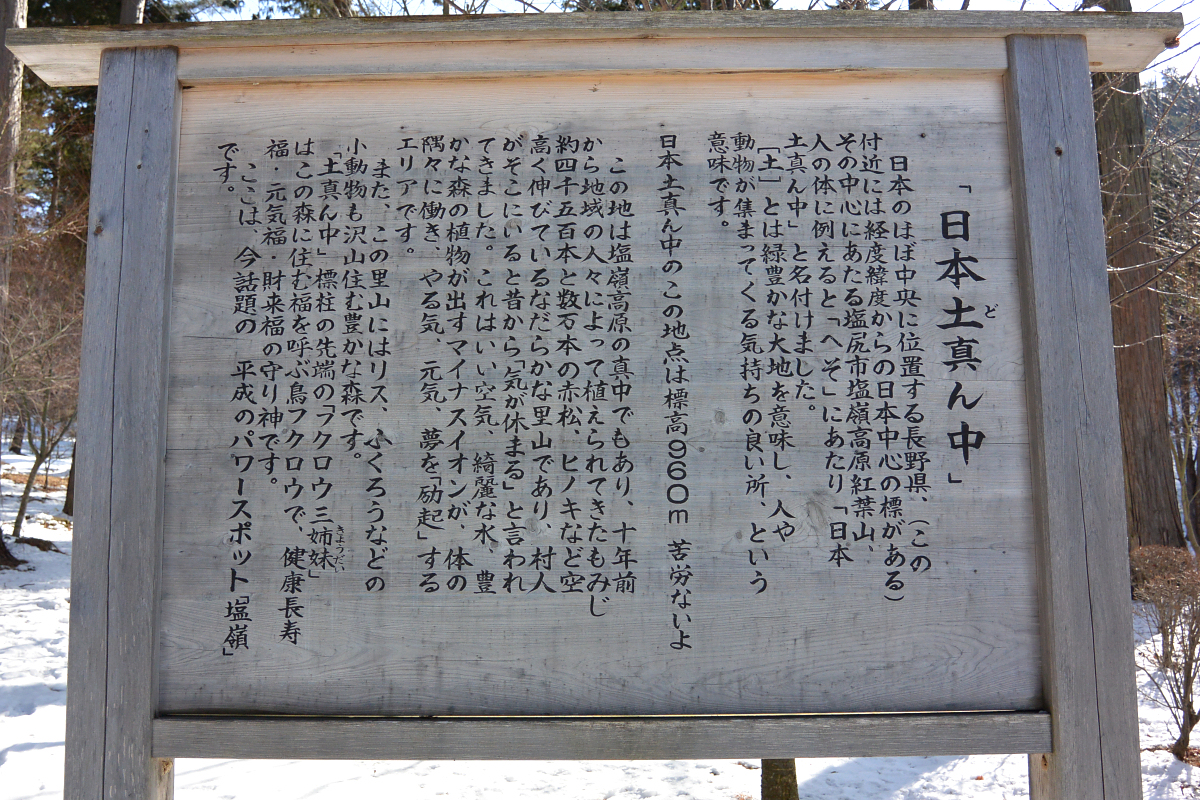 「日本土真ん中」
ど
日本のほぼ中央に位置する長野県、(この
付近には経度緯度からの日本中心の標がある)
その中心にあたる塩尻市塩嶺高原紅葉山、
人の体に例えると「へそ」にあたり「日本
土真ん中」と名付けました。
「土」とは緑豊かな大地を意味し、人や
動物が集まってくる気持ちの良い所、という
意味です。
日本土真ん中のこの地点は標高960m 苦労ないよ
この地は塩嶺高原の真中でもあり、十年前
から地域の人々によって植えられてきたもみじ
約四千五百本と数万本の赤松、ヒノキなど空
高く伸びているなだらかな里山であり、村人
がそこにいると昔から「気が休まる」と言われ
てきました。これはいい空気、綺麗な水、豊
かな森の植物が出すマイナスイオンが、体の
隅々に働き、やる気、元気、夢を「励起」する
エリアです。
また、この里山にはリス、ふくろうなどの
小動物も沢山住む豊かな森です。
「土真ん中」標柱の先端の「フクロウ三姉妹」
きょうだい
はこの森に住む福を呼ぶ鳥フクロウで、健康長寿
福・元気福・財来福の守り神です。
ここは、今話題の 平成のパワースポット「塩嶺」
です。